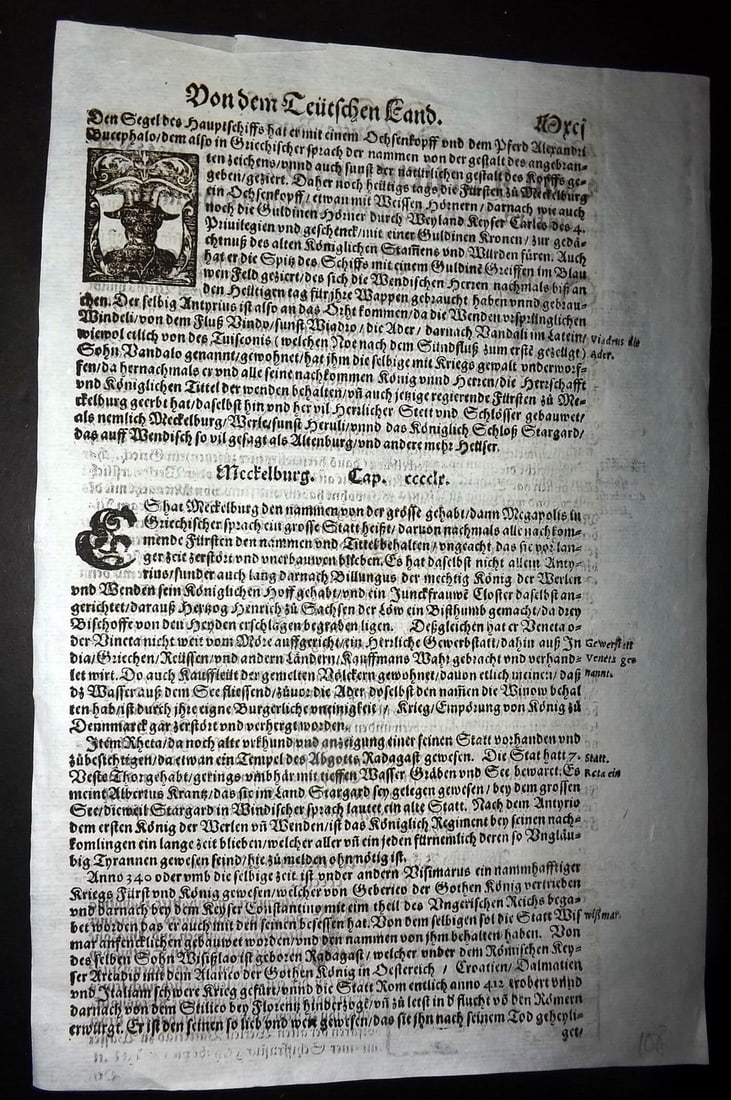 Von dem Teütschen Land.
Mxcj
Den Segel des Hauptschiffs hat er mit einem Ochsenkopff vnd dem Pferd Alexandri
Bucephalo/dem also in Griechischer sprach der nammen von der gestalt des angebran-
ten zeichens/vnnd auch sunst der natürlichen gestalt des Kopffs ge-
geben/geziert. Daher noch heütigs tags die Fürsten zů Meckelburg
ein Ochsenkopff/etwan mit Weissen Hörnern/darnach wie auch
noch die Guldinen Hörner durch Weyland Keyser Carles des 4.
Priuilegien vnd geschenck/mit einer Guldinen Kronen/zur gedä-
chtnuß des alten Königlichen Stammens vnd Würden füren. Auch
hat er die Spitz des Schiffs mit einem Guldinē Greiffen im Blau
wen Feld geziert/des sich die Wendischen Herren nachmals biß an
den Heütigen tag für jhre Wappen gebraucht haben vnnd gebrau-
chen. Der selbig Antyrius ist also an das Orht kommen/da die Wenden vrsprünglichen
Windeli/von dem Fluß Vindo/sunst Wiadro/die Ader/darnach Vandali im Latein/
wiewol etlich von des Tuisconis (welchen Noe nach dem Sündfluß zum erstē gezeügt)
Viadrus die
Ader.
Sohn Vandalo genannt/gewohnet/hat jhm die selbige mit Kriegs gewalt vnderworf-
fen/da hernachmals er vnd alle seine nachkommen König vnnd Herren/die Herrschafft
vnd Königlichen Tittel der wenden behalten/vñ auch jetzige regierende Fürsten zů Me-
ckelburg geerbt hat/daselbst hin vnd her vil Herrlicher Stett vnd Schlösser gebauwet/
als nemlich Meckelburg/Werle/sunst Heruli/vnnd das Königlich Schloß Stargard/
das auff Wendisch so vil gesagt als Altenburg/vnd andere mehr Heüser.
Meckelburg. Cap. cccclx.
ES hat Meckelburg den nammen von der grösse gehabt/dann Megapolis in
Griechischer sprach ein grosse Statt heißt/daruon nachmals alle nachkom-
mende Fürsten den nammen vnd Tittel behalten/vngeacht das sie vor lan-
ger zeit zerstört vnd vnerbauwen blieben. Es hat daselbst nicht allein Anty-
rius/sunder auch lang darnach Billungus der mechtig König der Werlen
vnd Wenden sein Königlichen Hoff gehabt/vnd ein Junckfrauwe Closter daselbst an-
gerichtet/darauß Hertzog Henrich zů Sachsen der Löw ein Bisthumb gemacht/da drey
Bischoffe von den Heyden erschlagen begraben ligen. Deßgleichen hat er Veneta o-
der Vineta nicht weit vom Möre auffgericht/ein Herrliche Gewerbstatt/dahin auß In
Gewerstatt
dia/Griechen/Reüssen/vnd andern Ländern/Kauffmans Wahr gebracht vnd verhand-
Veneta ge-
let wirt. Do auch Kauffleüt der gemelten Völckern gewohnet/dauon etlich meinen/daß
nannt.
dz Wasser auß dem See fliessend/zůuor die Ader/doselbst den namen die Winow behal
ten hab/ist durch jhre eigne Burgerliche vneinigkeit/ Krieg/Empörung von König zů
Dennmarck gar zerstört vnd verhergt worden.
Item Rheta/da noch alte vrkhund vnd anzeigung einer feinen Statt vorhanden vnd
zůbesichtigen/da etwan ein Tempel des Abgotts Radagast gewesen. Die Stat hatt 7.
Statt.
Veste Thor gehabt/gerings vmbhär mit tieffen Wasser Gräben vnd See bewaret. Es
Reta ein
meint Albertus Krantz/das sie im Land Stargard sey gelegen gewesen/bey dem grossen
See/dieweil Stargard in Windischer sprach lautet ein alte Statt. Nach dem Antyrio
dem ersten König der Werlen vñ Wenden/ist das Königlich Regiment bey seinen nach-
komlingen ein lange zeit blieben/welcher aller vñ ein jeden fürnemlich deren so Vngläu-
big Tyrannen gewesen seind/hie zů melden ohnnötig ist.
Anno 340 oder vmb die selbige zeit ist vnder andern Visimarus ein nammhafftiger
Kriegs Fürst vnd König gewesen/welcher von Geberico der Gothen König vertrieben
vnd darnach bey dem Keyser Constantino mit ein theil des Vngerischen Reichs bega-
bet worden das er auch mit den seinen besessen hat. Von dem selbigen sol die Statt Wiß
wißmar.
mar anfencklichen gebauwet worden/vnd den nammen von jhm behalten haben. Von
des selben Sohn Wisißlao ist geboren Radagast/welcher vnder dem Römischen Key-
ser Arcadio mit dem Alarico der Gothen König in Oestereich / Croatien/Dalmatien
vnd Italiam schwere Krieg gefürt/vnnd die Statt Rom entlich anno 412 erobert vnnd
darnach von dem Stilico bey Florentz hinderzogē/vñ zů letst in d flucht vō dēn Römern
erwürgt. Er ist den seinen so lieb vnd wert gewesen/das sie jhn nach seinem Tod geheyli-
get/
108